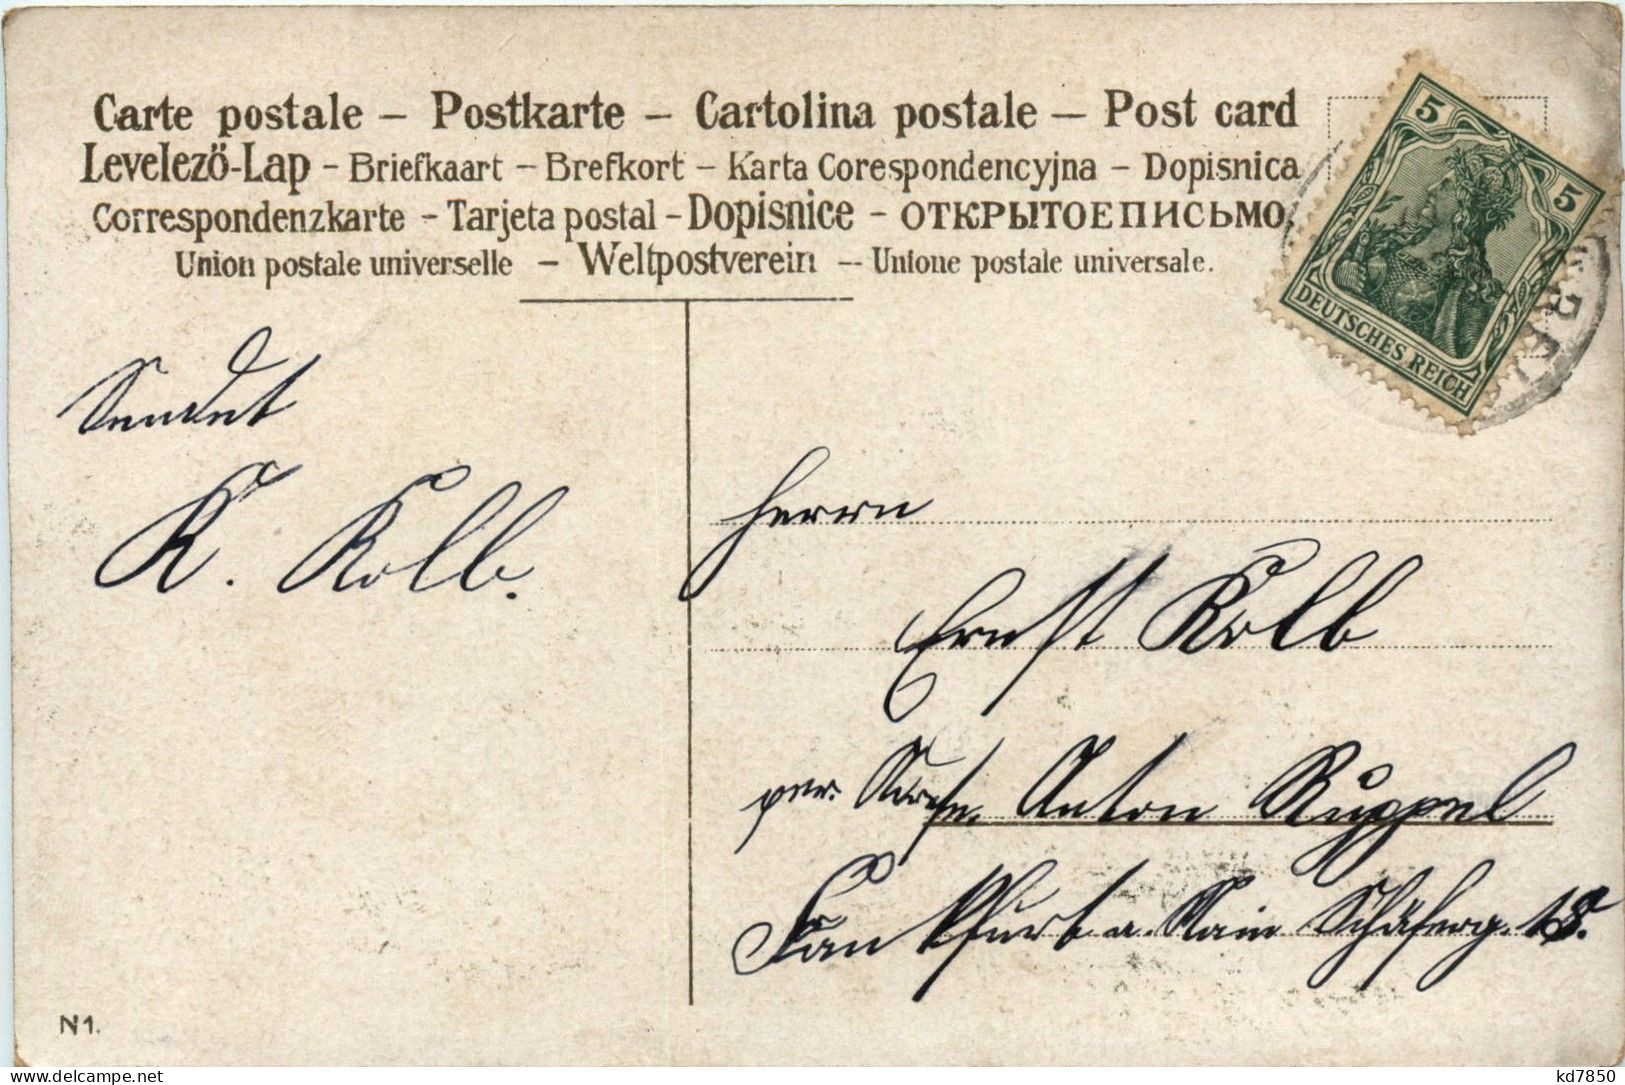 Carte postale – Postkarte – Cartolina postale – Post card
Levelező-Lap – Briefkaart – Brefkort – Karta Corespondencyjna – Dopisnica
Correspondenzkarte – Tarjeta postal – Dopisnice – ОТКРЫТОЕ ПИСЬМО.
Union postale universelle – Weltpostverein – Unione postale universale.
5
5
DEUTSCHES REICH
Sendet
K. Kolb.
Herrn
Ernst Kolb
per. Anton Ruppel
Frankfurt a. Main Schäferg. 18.
N 1.
https://www.delcampe.net
kd7850